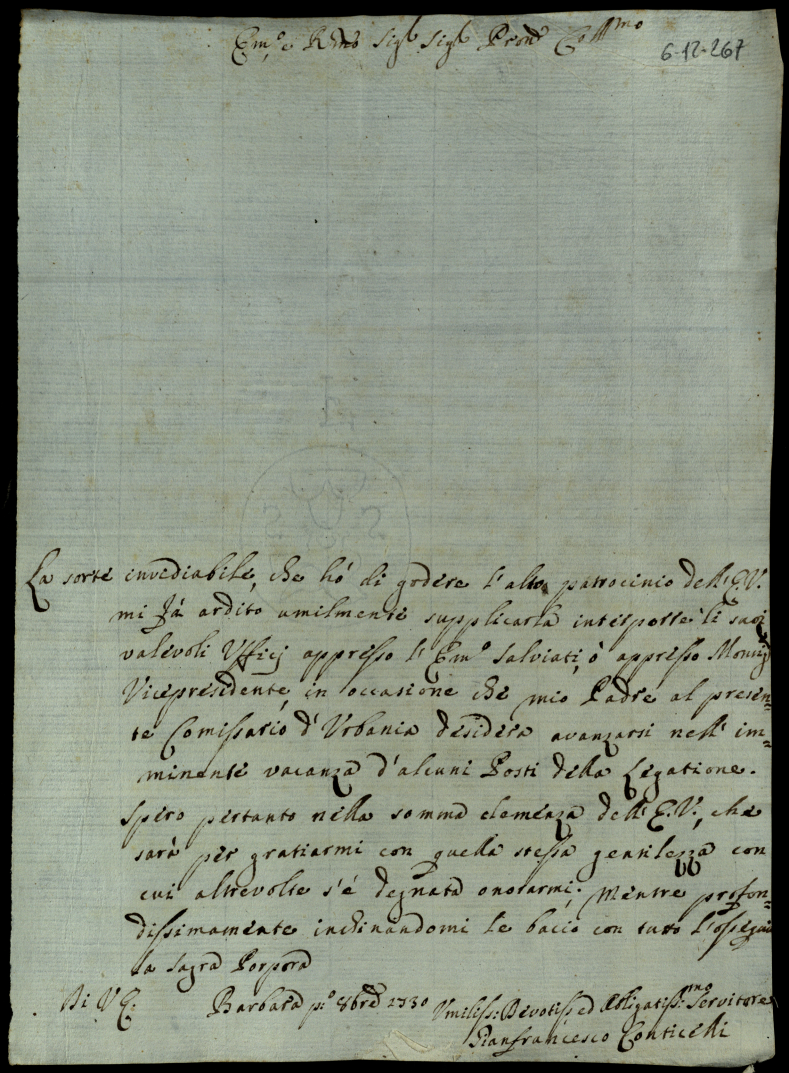 Em.o e R.mo Sig.r Sig.r Pron Col.mo
6-12-267
La sorte invediabile, che hò di godere l'alto patrocinio dell'E.V.
mi fà ardito umilmente supplicarla interporre li suoi
valevoli Ufficj appresso l'Em.o Salviati, ò appresso Monsig.r
Vicepresidente, in occasione che mio Padre al presen=
te Comissario d'Urbania desidera avanzarsi nell'im=
minente vacanza d'alcuni Posti della Legatione.
Spero pertanto nella somma clemenza dell'E.V., che
sarà per gratiarmi con quella stessa gentilezza con
cui altrevolte s'é degnata onorarmi; Mentre profon=
dissimamente inchinandomi le bacio con tutto l'ossequio
la Sagra Porpora
Di V.E.
Barbara p.o 8bre 1730
Umiliss: Devotiss ed Obligatiss:mo Servitore
Gianfrancesco Conticelli